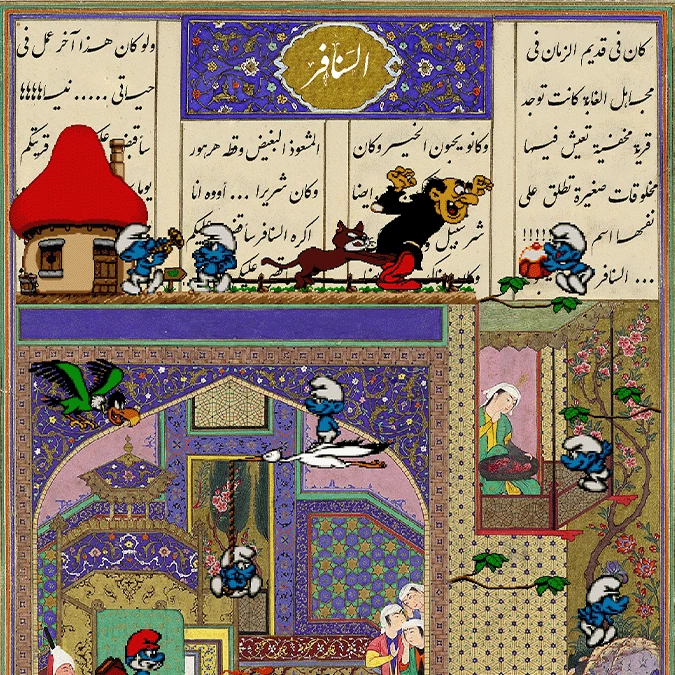 السنافر
كان في قديم الزمان في
مجاهل الغابة كانت توجد
قرية مخفية تعيش فيها
مخلوقات صغيرة تطلق على
نفسها اسم !!!!!
... السنافر
وكانو يحبون الخير وكان
ايضا
شرشبيل
المشعوذ البغيض وقطه هرهور
وكان شريرا ... أووه انا
اكره السنافر سأقضي عليكم
عليكم
ولو كان هذا آخر عمل في
حياتي ..... نياهاهاها
سأقضي قريتكم
يوما